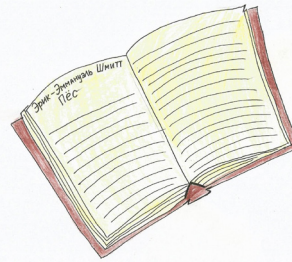 Эрик-Эммануэль Шмитт
Пёс